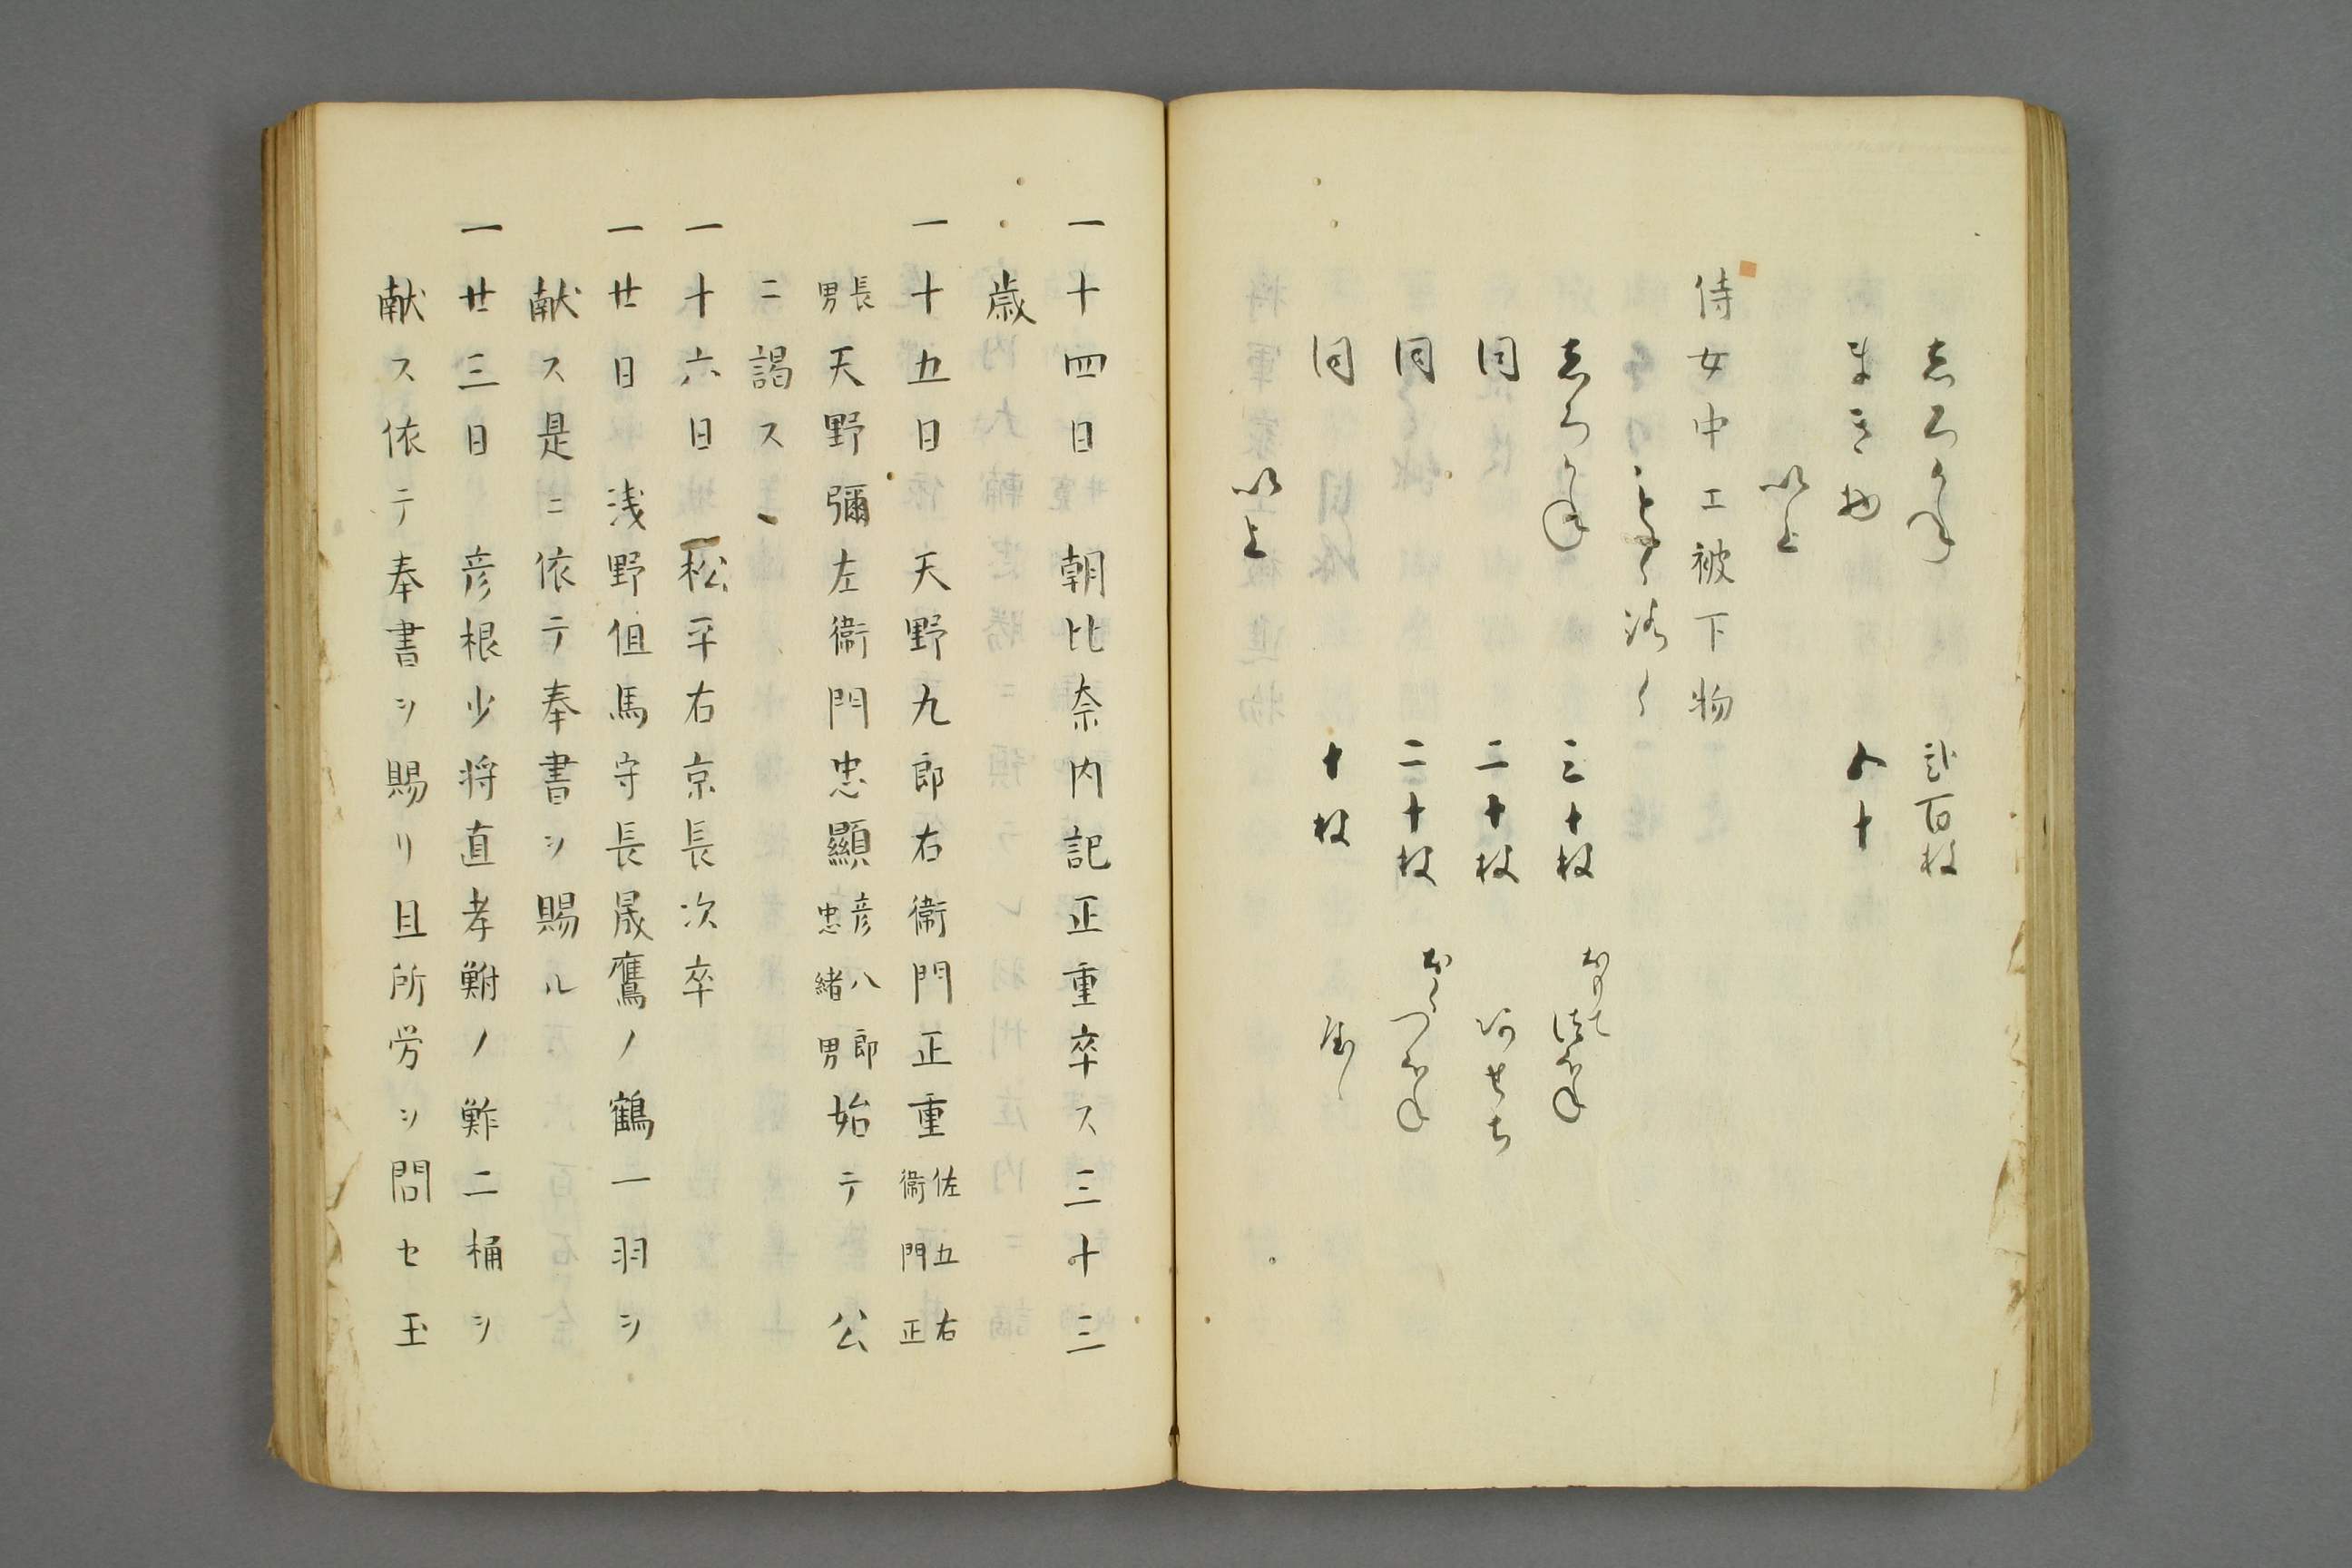 志ろかね　弐百枚
まき物　五十
以上
侍女中エ被下物
志ろかね　三十枚
同　二十枚
同　二十枚
同　十枚
以上
一十四日　朝比奈内記正重卒ス三十三
歳
一十五日　天野九郎右衛門正重佐五右衛門正
長男天野彌左衛門忠顯彦八郎忠緒男始テ　公
ニ謁ス
一十六日　松平右京長次卒
一廿日　浅野但馬守長晟鷹ノ鶴一羽ヲ
献ス是ニ依テ奉書ヲ賜ル
一廿三日　彦根少将直孝鮒ノ鮓二桶ヲ
献ス依テ奉書ヲ賜リ且所労ヲ問セ玉